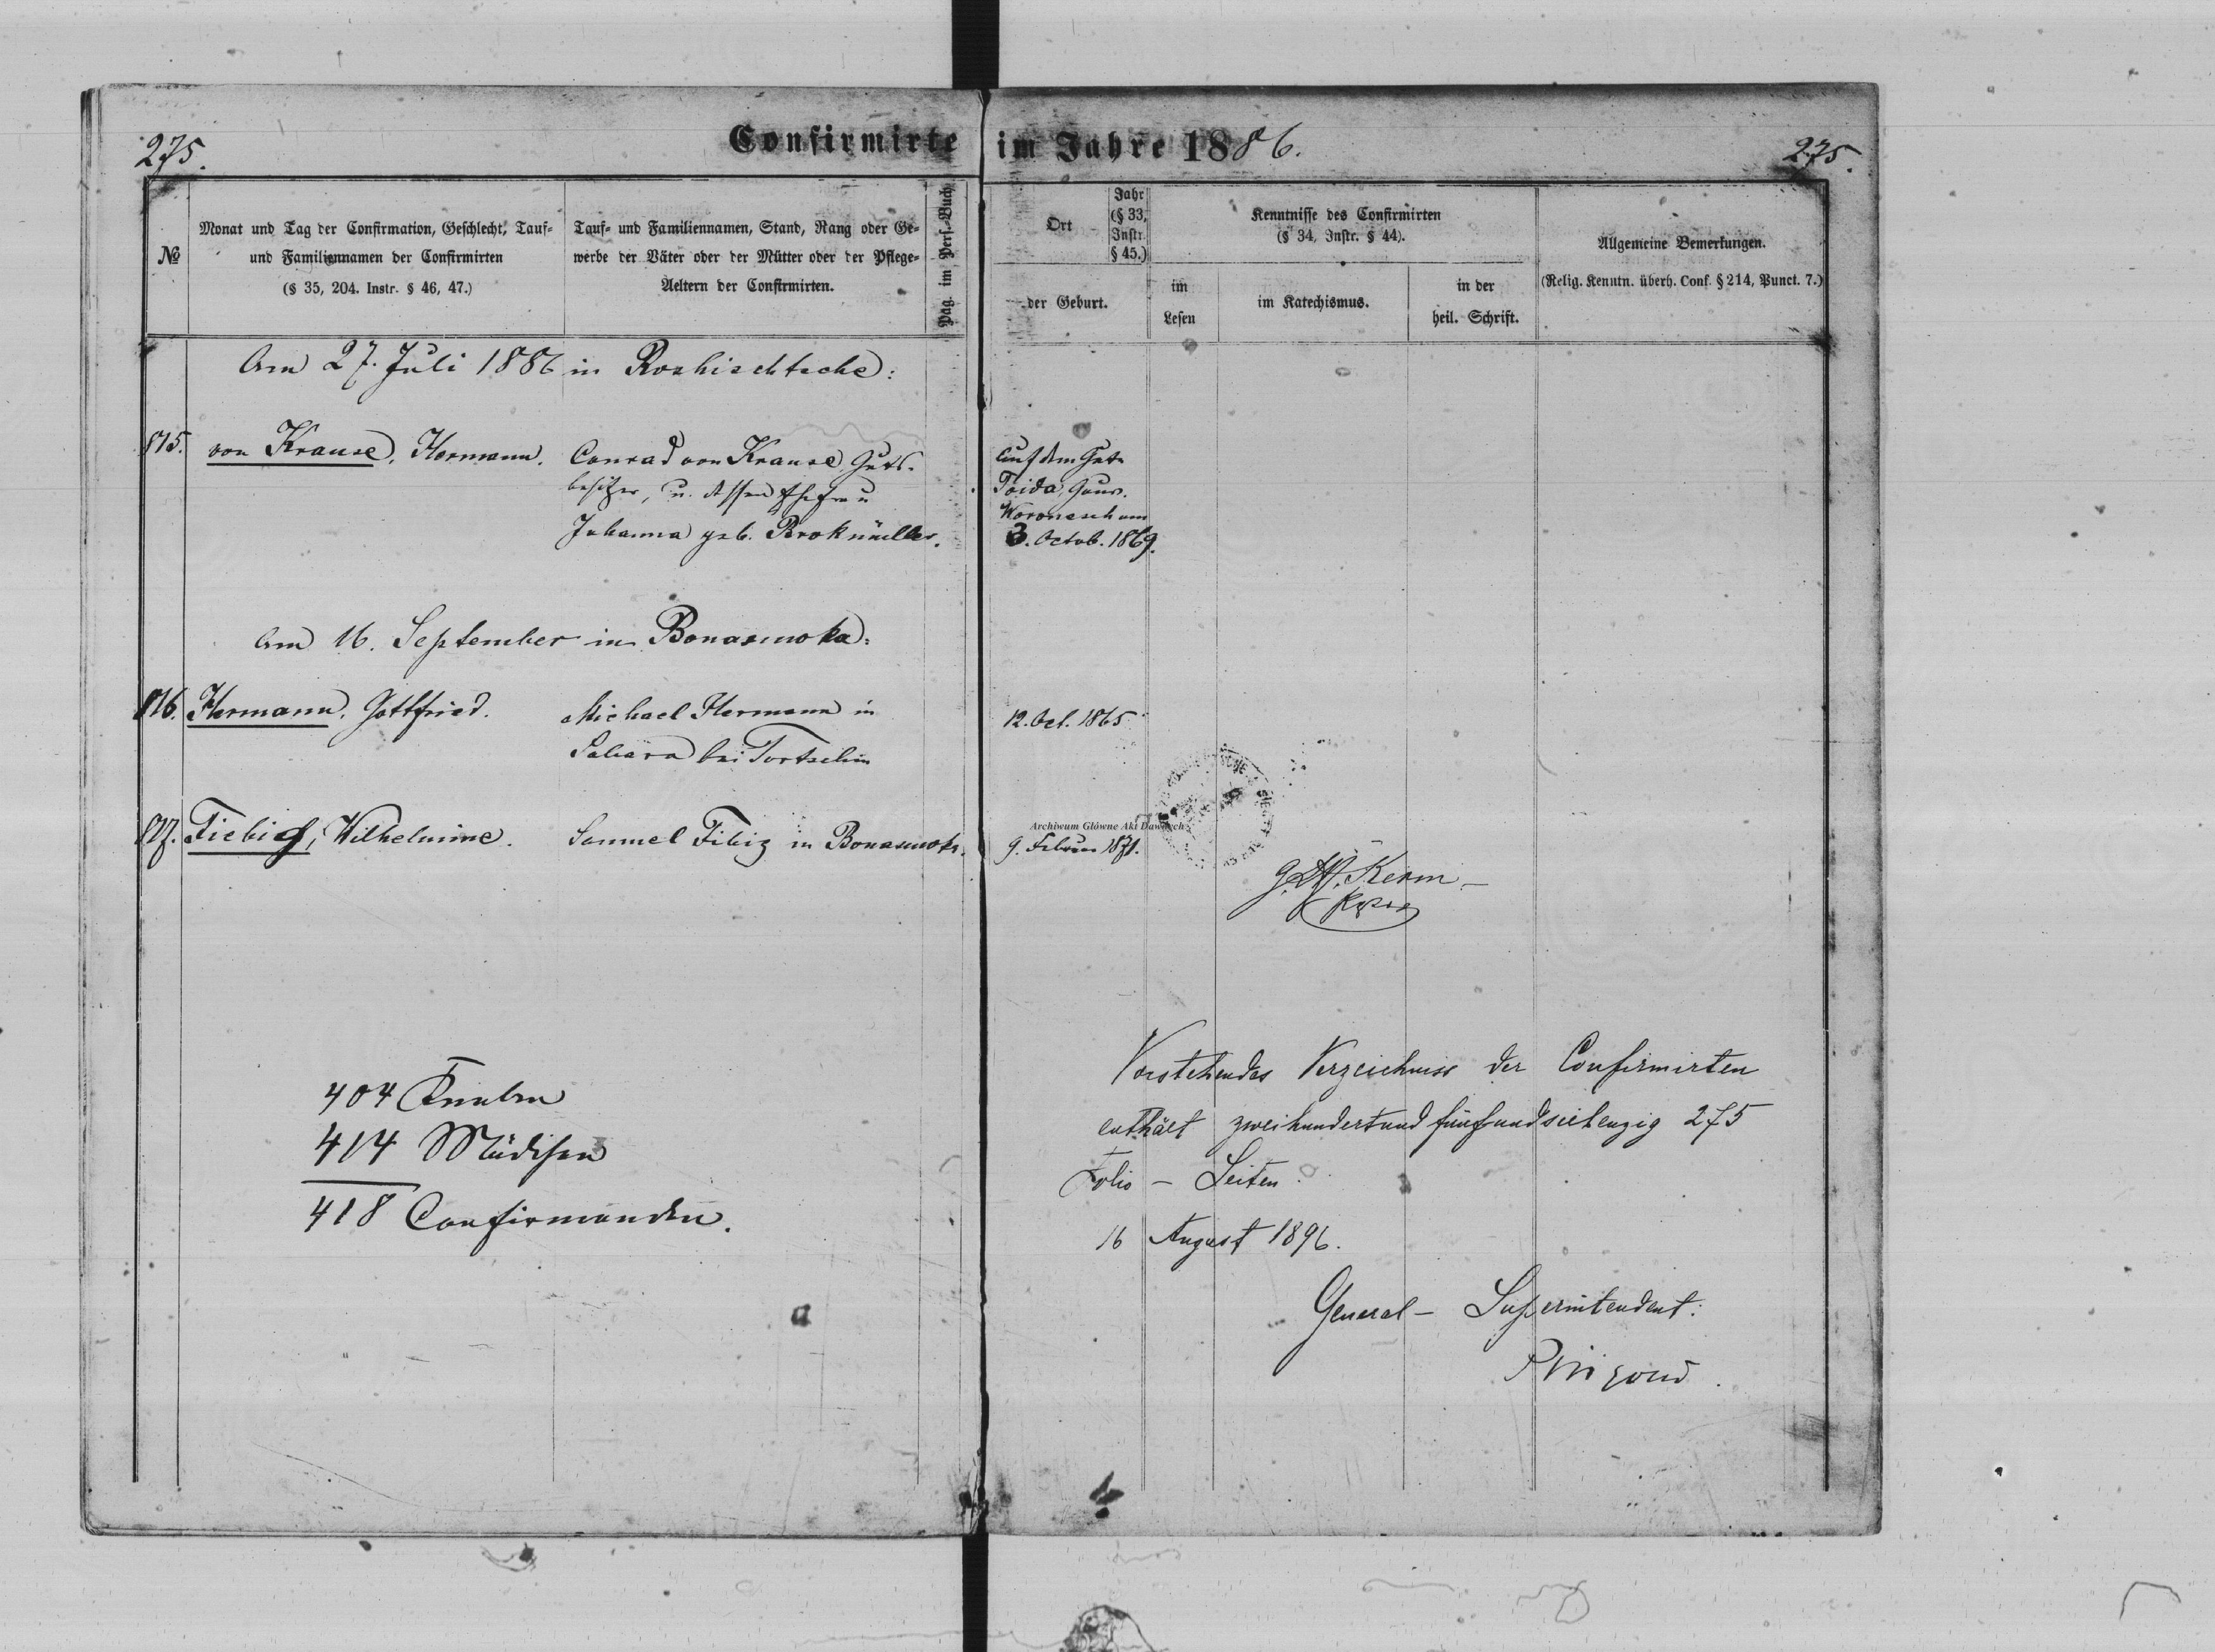 275.
Confirmirte im Jahre 1886.
275.
№
Monat und Tag der Confirmation, Geschlecht, Tauf-
und Familiennamen der Confirmirten
(§ 35, 204. Instr. § 46, 47.)
Tauf- und Familiennamen, Stand, Rang oder Ge-
werbe der Väter oder der Mütter oder der Pflege-
Aeltern der Confirmirten.
Pag. im Pers.-Buch
Ort
Jahr
(§ 33,
Instr.
§ 45.)
der Geburt.
Kenntnisse des Confirmirten
(§ 34, Instr. § 44).
im
Lesen
im Katechismus.
in der
heil. Schrift.
Allgemeine Bemerkungen.
(Relig. Kenntn. überh. Conf. § 214, Punct. 7.)
Am 27. Juli 1886 in Roshischtsche:
815. von Krause, Hermann.
Conrad von Krause Guts-
besitzer, u. dessen Ehefrau
Johanna geb. Brokmüller.
Auf dem Gute
Toida, Gouv.
Woronesch am
3. Octob. 1869.
Am 16. September in Bonasuwka:
816. Hermann, Gottfried.
Michael Hermann in
bei Tortschin
12. Oct. 1865
817. Fiebig, Wilhelmine.
Samuel Fibig in
Archiwum Główne Akt Dawnych
9. Februar 1871.
Kerm
404 Knaben
414 Mädchen
418 Confirmanden.
Vorstehendes Verzeichniss der Confirmirten
enthält zweihundertund fünfundsiebenzig 275
Folio - Seiten.
16 August 1896.
General - Superintendent:
Pingoud.